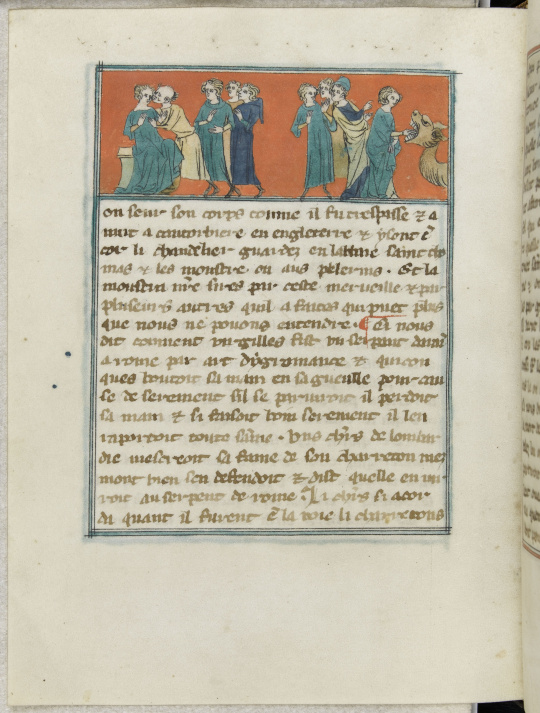 on seur son corps comme il fu trespasse ⁊ a
nuit a cantorbiere en engleterre ⁊ ysont ē
cor li chandelier guardez en laltme saint tho
mas ⁊ les moustre on aus pelerins · Et la
moustra nr̄e sires par ceste merueille ⁊ par
pluseurs autres quil a faites qui puet plus
que nous ne pouons entendre · ¶ Ci nous
dit comment virgilles fist vn serpent darain
a rome par art dyngromance ⁊ quicon
ques boutoit sa main en sa gueulle pour cau
se de serement sil se pariuroit il perdoit
sa main ⁊ si faisoit bon serement il len
raportoit toute saine · Vns chr̄s de lombar
die mescreoit sa fame de son charreton mes
mont bien sen deffendoit ⁊ dist quelle en iu
roit au serpent de rome · Li chr̄s si acor
da quant il furent ē la voie li charretons